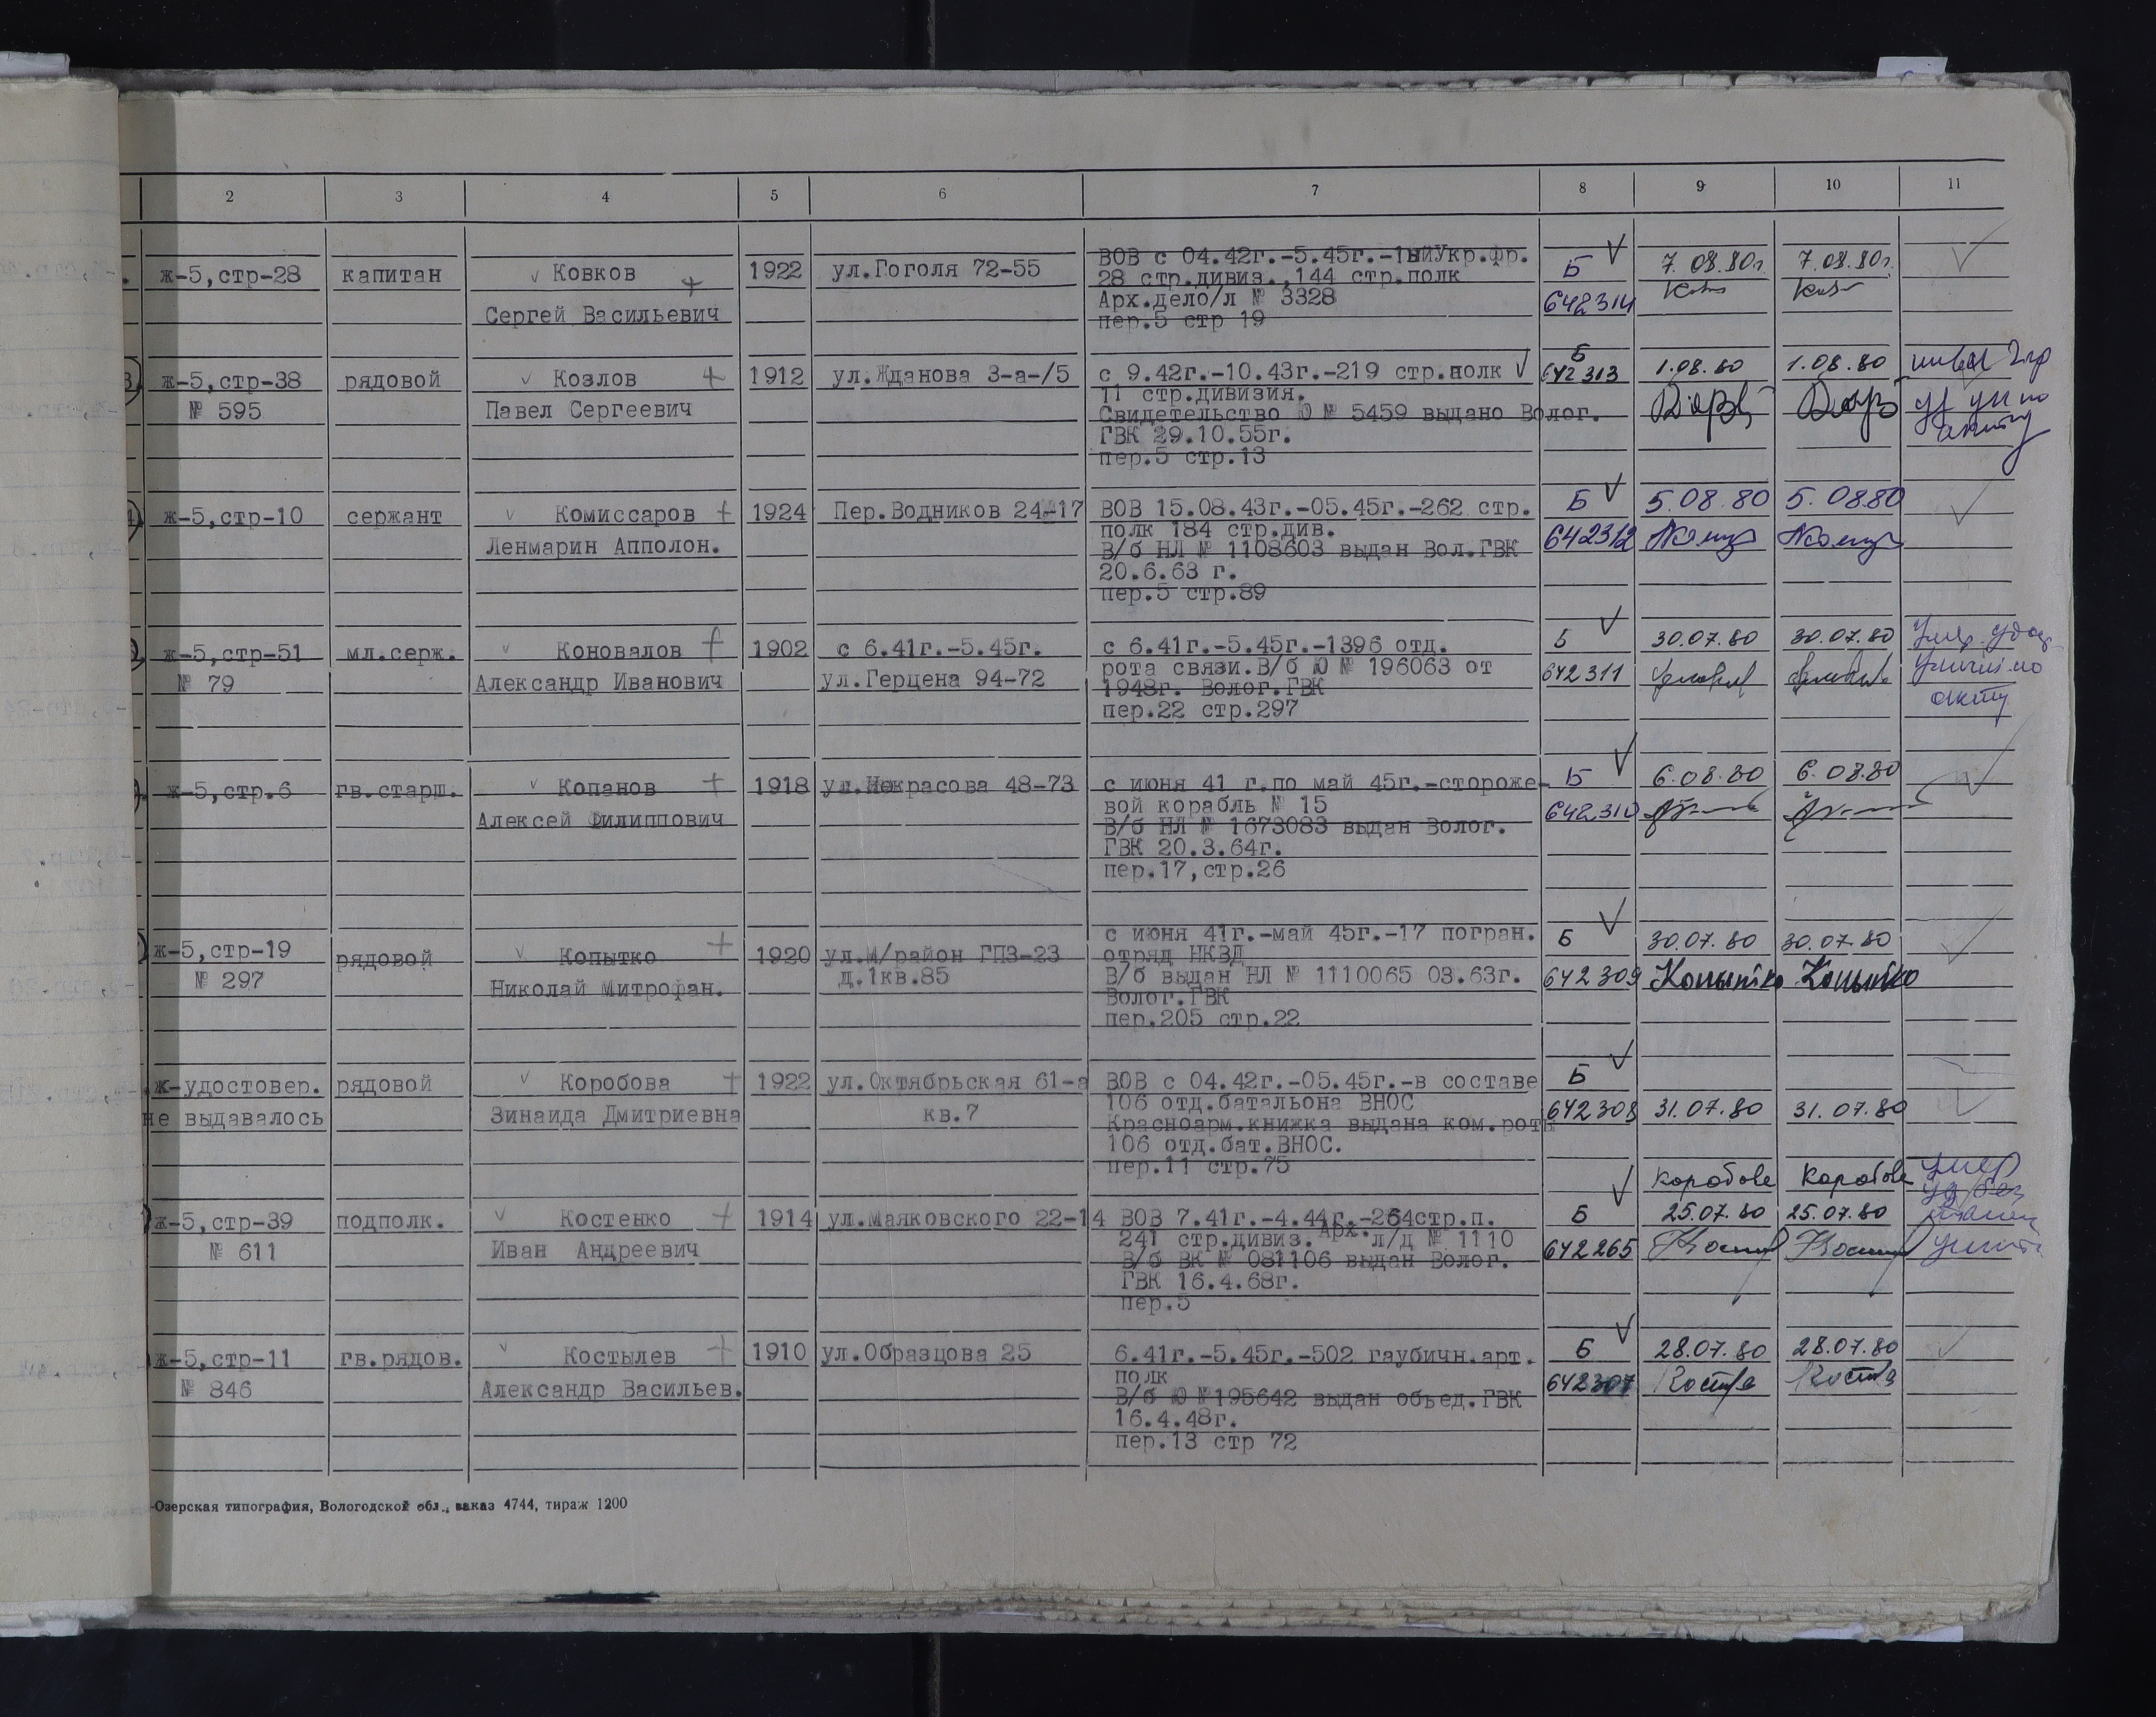 2 3 4 5 6 7 8 9 10 11
ж-5,стр-28 капитан Ковков 1922 ул.Гоголя 72-55 ВОВ с 04.42г.-5.45г.-1ыйУкр.фр. Б 7.08.80г. 7.08.80г.
28 стр.дивиз.,144 стр.полк
Сергей Васильевич Арх.дело/л № 3328 642314
пер.5 стр 19
ж-5,стр-38 рядовой Козлов 1912 ул.Жданова 3-а-/5 с 9.42г.-10.43г.-219 стр.полк Б 1.08.80 1.08.80
642313
11 стр.дивизия.
№ 595 Павел Сергеевич Свидетельство Ю № 5459 выдано Волог.
ГВК 29.10.55г.
пер.5 стр.13
ж-5,стр-10 сержант Комиссаров 1924 Пер.Водников 24-17 ВОВ 15.08.43г.-05.45г.-262 стр. Б 5.08.80 5.08.80
полк 184 стр.див.
Ленмарин Апполон. В/б НЛ № 1108603 выдан Вол.ГВК 642312
20.6.63 г.
пер.5 стр.89
ж-5,стр-51 мл.серж. Коновалов 1902 с 6.41г.-5.45г. с 6.41г.-5.45г.-1396 отд. Б 30.07.80 30.07.80
рота связи.В/б Ю № 196063 от
№ 79 Александр Иванович ул.Герцена 94-72 1948г. Волог.ГВК 642311
пер.22 стр.297 акту
ж-5,стр.6 гв.старш. Копанов 1918 ул.Некрасова 48-73 с июня 41 г.по май 45г.-стороже- Б 6.08.80 6.08.80
вой корабль № 15
Алексей Филиппович В/б НЛ № 1673083 выдан Волог. 642310
ГВК 20.3.64г.
пер.17,стр.26
с июня 41г.-май 45г.-17 погран.
ж-5,стр-19 рядовой Копытко 1920 ул.М/район ГПЗ-23 отряд НКВД Б 30.07.80 30.07.80
№ 297 Николай Митрофан. д.1кв.85 В/б выдан НЛ № 1110065 03.63г. 642309 Копытко Копытко
Волог.ГВК
пер.205 стр.22
ж-удостовер. рядовой Коробова 1922 ул.Октябрьская 61-а ВОВ с 04.42г.-05.45г.-в составе Б
106 отд.батальона ВНОС
не выдавалось Зинаида Дмитриевна кв.7 Красноарм.книжка выдана ком.роты 642308 31.07.80 31.07.80
106 отд.бат.ВНОС.
пер.11 стр.75
Коробова Коробова умер
ж-5,стр-39 подполк. Костенко 1914 ул.Маяковского 22-14 ВОВ 7.41г.-4.44г.-264стр.п. Б 25.07.80 25.07.80
№ 611 Иван Андреевич 241 стр.дивиз. Арх. л/д № 1110 642265
В/б ВК № 081106 выдан Волог.
ГВК 16.4.68г.
пер.5
ж-5,стр-11 гв.рядов. Костылев 1910 ул.Образцова 25 6.41г.-5.45г.-502 гаубичн.арт. Б 28.07.80 28.07.80
полк
№ 846 Александр Васильев. В/б Ю №195642 выдан объед.ГВК 642307
16.4.48г.
пер.13 стр 72
-Озерская типография, Вологодской обл., заказ 4744, тираж 1200